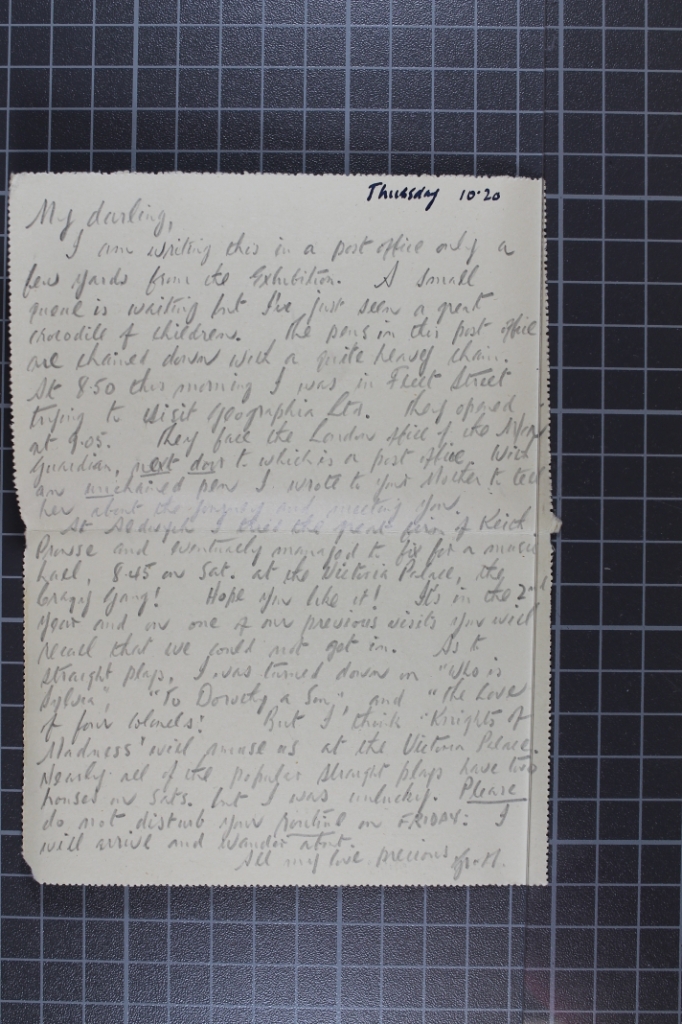 Thursday 10.20
My darling,
I am writing this in a post office only a
few yards from the Exhibition. A small
queue is waiting but I've just seen a great
crocodile of children. The pens in this post office
are chained down with a quite heavy chain.
At 8.50 this morning I was in Fleet Street
trying to visit Geographia Ltd. They opened
at 9.05. They face the London office of the
Guardian, next door to which is a post office. With
an unchained pen I wrote to your Mother to tell
her about the journey and meeting you.
At Aldwych I tried the great firm of Keith
Prowse and eventually managed to fix for a music
hall, 8.45 on Sat. at the Victoria Palace, the
Crazy Gang! Hope you like it! It's in the 2nd
year and on one of our previous visits you will
recall that we could not get in. As to
straight plays, I was turned down on "Who is
Sylvia", "To Dorothy a Son", and "The Love
of four Colonels! But I think "Knights of
Madness" will amuse us at the Victoria Palace.
Nearly all of the popular straight plays have two
houses on Sats. but I was unlucky. Please
do not disturb your routine on FRIDAY: I
will arrive and wander about.
All my love, precious